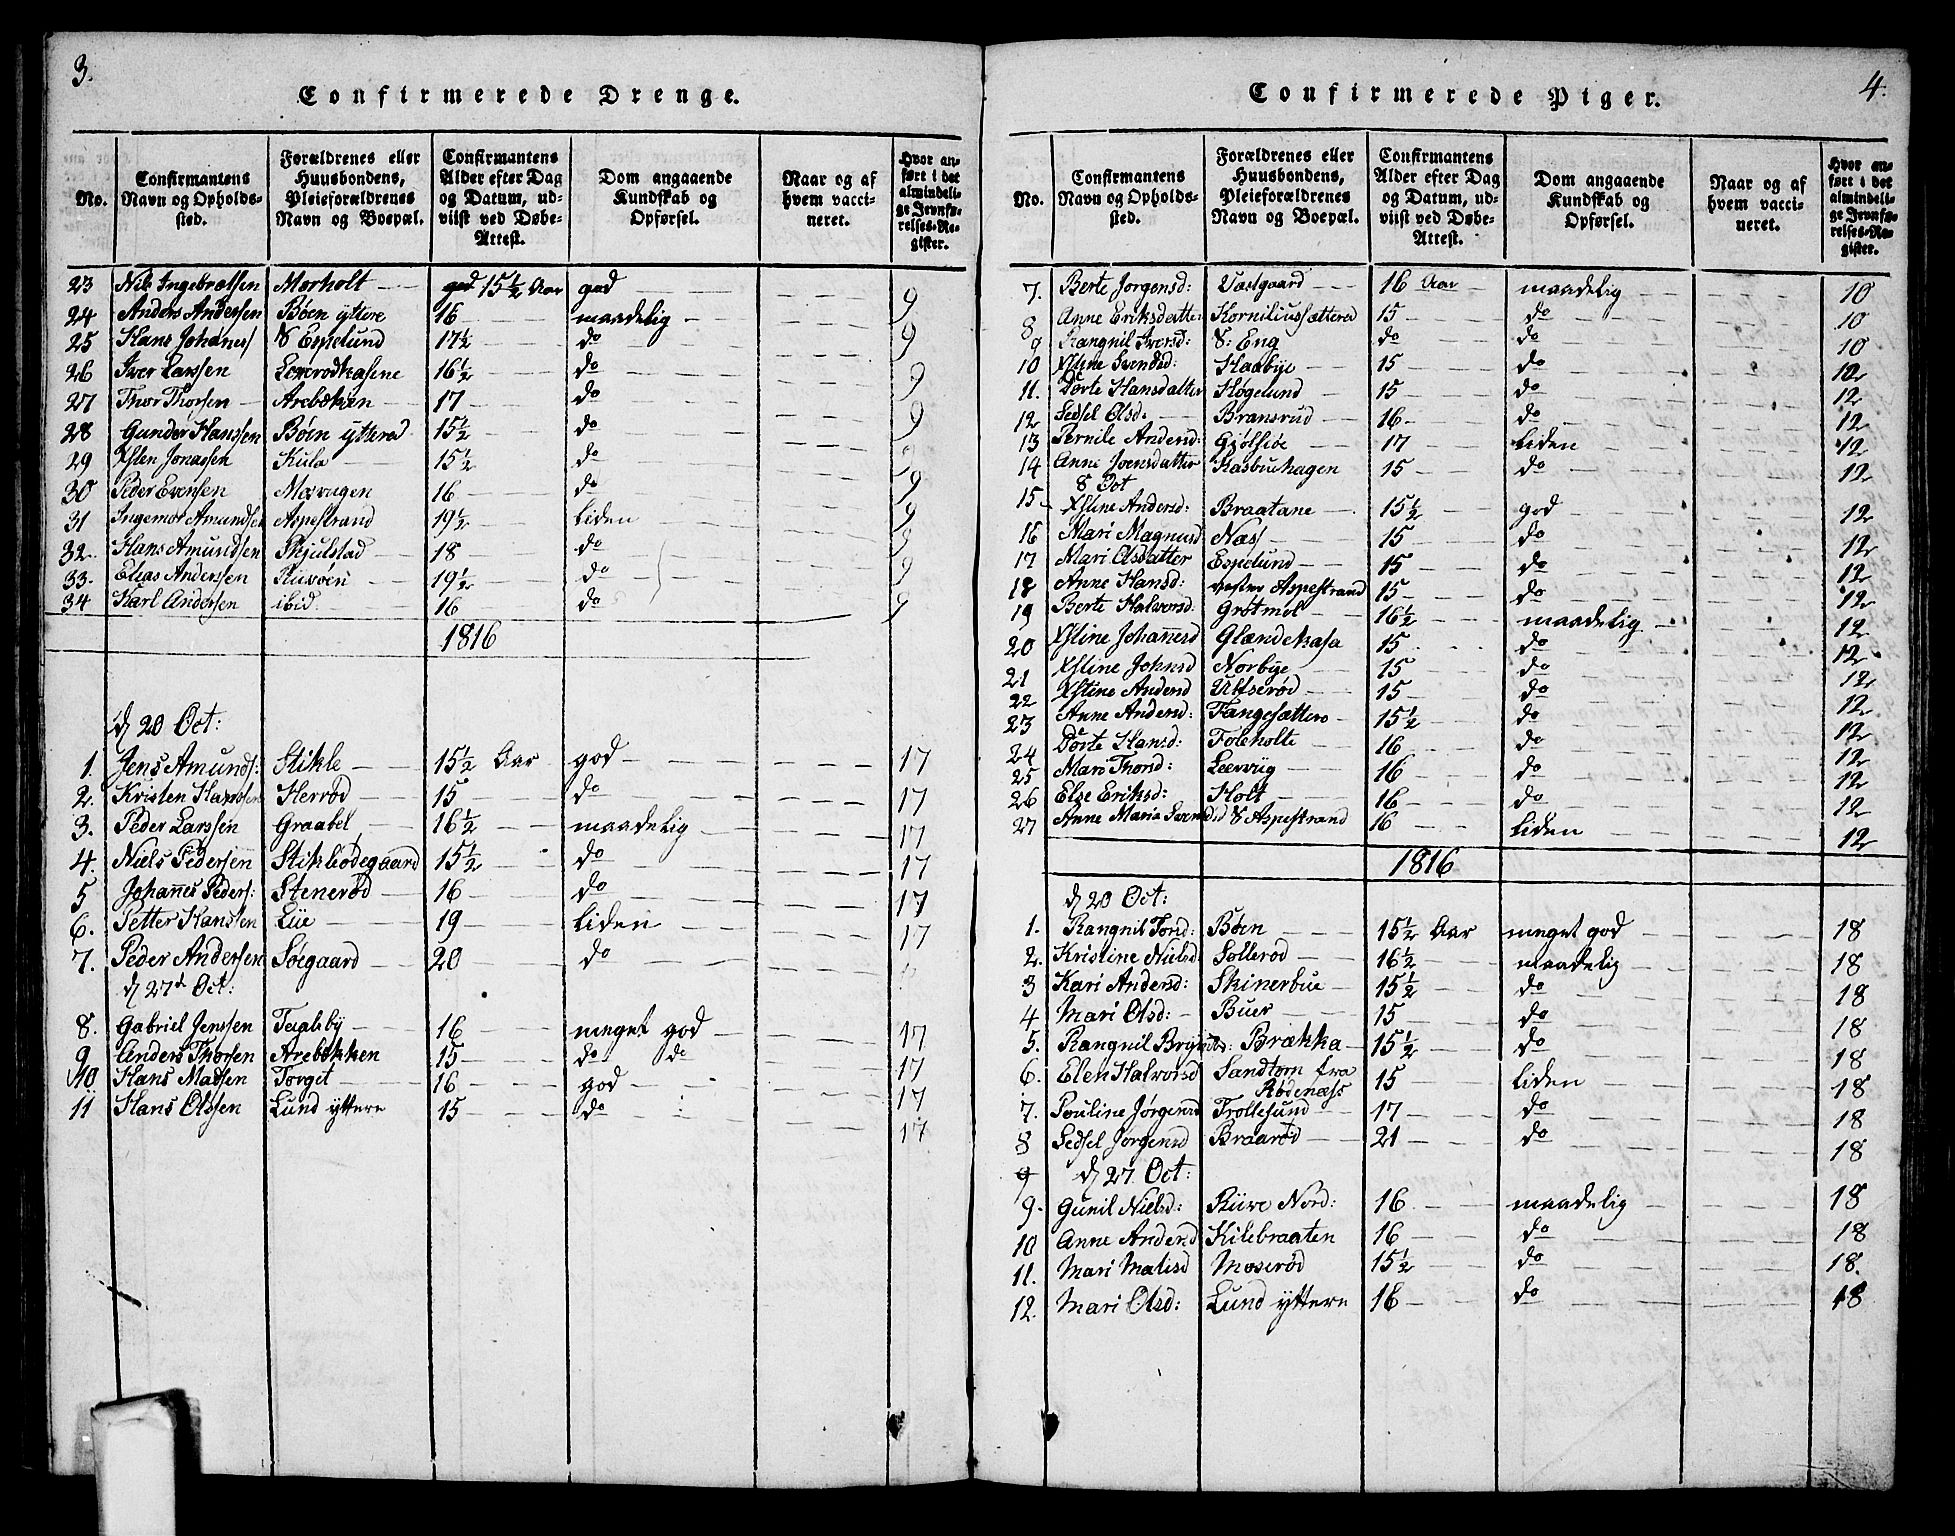 3.
Confirmerede Drenge.
No.
Confirmantens Navn og Opholds-sted.
Forældrenes eller Huusbondens, Pleieforældrenes Navn og Boepæl.
Confirmantens Alder efter Dag og Datum, ud-viist ved Døbe-Attest.
Dom angaaende Kundskab og Opførsel.
Naar og af hvem vacci-neret.
Hvor an-ført i det almindeli-ge Jevnfø-relses-Re-gister.
23 Nils Ingebretsen Morholt 15½ Aar god 9
24 Anders Andersen Böen yttere 16 maadelig 9
25 Hans Johanes 8 Espelund 17½ do 9
26 Iver Larssen 16½ do 9
27 Thor Thorsen Arebækken 17 do 9
28 Gunder Hanssen Böen ytterød 15½ do 9
29 Xsten Jonassen Kula 15½ do 9
30 Peder Evensen 16 do 9
31 Ingemor Amundsen Aspestrand 19½ liden 9
32. Hans Amundsen Skjulstad 18 do 9
33. Elias Anderssen 19½ do 9
34 Karl Andersen ibid. 16 do 9
1816
d 20 Oct:
1. Jens Amunds: Stikle 15½ Aar god 17
2. Kristen Hanssen Herröd 15 do 17
3. Peder Larssen Graabøl 16½ maadelig 17
4. Niels Pedersen Stikleödegaard 15½ do 17
5 Johannes Peders: Steneröd 16 do 17
6. Petter Hanssen Lie 19 liden 17
7. Peder Andersen Söegaard 20 do
d 27d Oct:
8. Gabriel Jenssen Tagleby 16 meget god 17
9 Anders Thorsen Arebækken 15 do do 17
10 Hans Madsen Torget 16 god 17
11 Hans Olssen Lund yttere 15 do 17
4.
Confirmerede Piger.
No.
Confirmantens Navn og Opholds-sted.
Forældrenes eller Huusbondens, Pleieforældrenes Navn og Boepæl.
Confirmantens Alder efter Dag og Datum, ud-viist ved Døbe-Attest.
Dom angaaende Kundskab og Opførsel.
Naar og af hvem vacci-neret.
Hvor an-ført i det almindeli-ge Jevnfø-relses-Re-gister.
7. Berte Jorgensd: Vestgaard 16 Aar maadelig 10
8 Anne Eriksdatter Korniliussætteren 15 do 10
9 Rangnil Iversd: 8: Eng do do 10
10 Xstine Svendsd: Haabye 15 do 12
11. Dörte Hansdatter Högelund 15 do 12
12 Sedsel Olsd: Bransrud 16 do 12
13 Pernile Andersd: Gjölsiöe 17 liden 12
14 Anne Svensdatter Kasbuhagen 15 do 12
8 Oct
15 Xstine Andersd: Braatane 15½ god 12
16 Mari Magnusd Næs 15 do 12
17 Mari Olsdatter Espelund 15 do 12
18 Anne Hansd: Aspestrand 15 do 12
19 Berte Halversd: Grötmol 16½ maadelig 12
20 Xstine Johannesd Glændekasa 15 do 12
21 Xstine Johnsd Norbye 15 do 12
22 Xstine Andersd Ulfseröd 15 do 12
23 Anne Andersd: Tangesættere 15½ do 12
24 Dörte Hansd: Toleholte 16 do 12
25 Mari Thord: Leerviig 16 do 12
26 Else Eriksd: Holt 16 do 12
27 Anne Maria Svendsd 8 Aspestrand 16 liden 12
1816
d 20 Oct:
1. Rangnil Tord: Böen 15½ Aar meget god 18
2. Kristine Nielsd Solleröd 16½ maadelig 18
3 Kari Andersd: Skinerbue 15½ do 18
4 Mari Olsd: Buer 15 do 18
5. Rangnil Brække 15½ do 18
6. Elen Halvorsd Sandtorn fra Rödenæss 15 liden 18
7. Pouline Jörgensd Trollesund 17 do 18
8 Sedsel Jörgensd Braaröd 21 do 18
9 d 27 Oct:
9. Gunil Nielsd: Riive Nord: 16 maadelig 18
10 Anne Andersd Kilebraaten 16 do 18
11. Mari Matisd Moseröd 15½ do 18.
12. Mari Olsd: Lund yttere 16 do 18